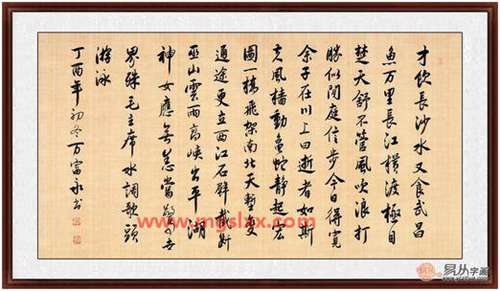 才饮長沙水又食武昌
魚万里長江橫渡極目
楚天舒不管風吹浪打
勝似閒庭信步今日得寬
余子在川上曰逝者如斯
夫風樯動龜蛇靜起宏
圖一橋飛架南北天塹變
通途更立西江石壁截断
巫山雲雨高峽出平湖
神女應無恙當驚世
界殊毛主席水調歌頭
游泳
丁酉年初冬万富永书
易从字画